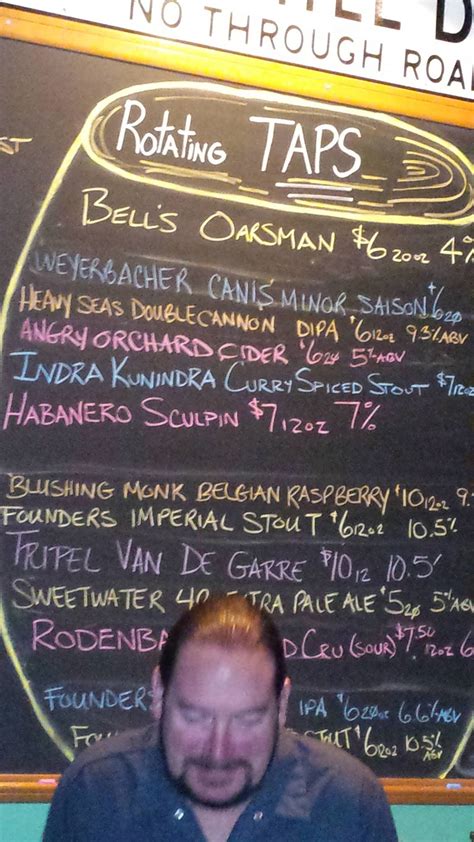 NO THROUGH ROA
ST
ROTATING TAPS
BELL'S OARSMAN $6 20oz 4%
WEYERBACHER CANIS MINOR SAISON $6 20
HEAVY SEAS DOUBLECANNON DIPA $6 12oz 9.3% ABV
ANGRY ORCHARD CIDER $6 20 5% ABV
INDRA KUNINDRA CURRY SPICED STOUT $7 12oz
HABANERO SCULPIN $7 12oz 7%
BLUSHING MONK BELGIAN RASPBERRY $10 12oz 9
FOUNDERS IMPERIAL STOUT $6 12oz 10.5%
TRIPEL VAN DE GARRE $10 12 10.5%
SWEETWATER 4 TRA PALE ALE $5 20 5% ABV
RODENBA D CRU (SOUR) $7.50 12oz 6
FOUNDERS IPA $6 20oz 6.6% ABV
FO STOUT $6 12oz 10.5% ABV